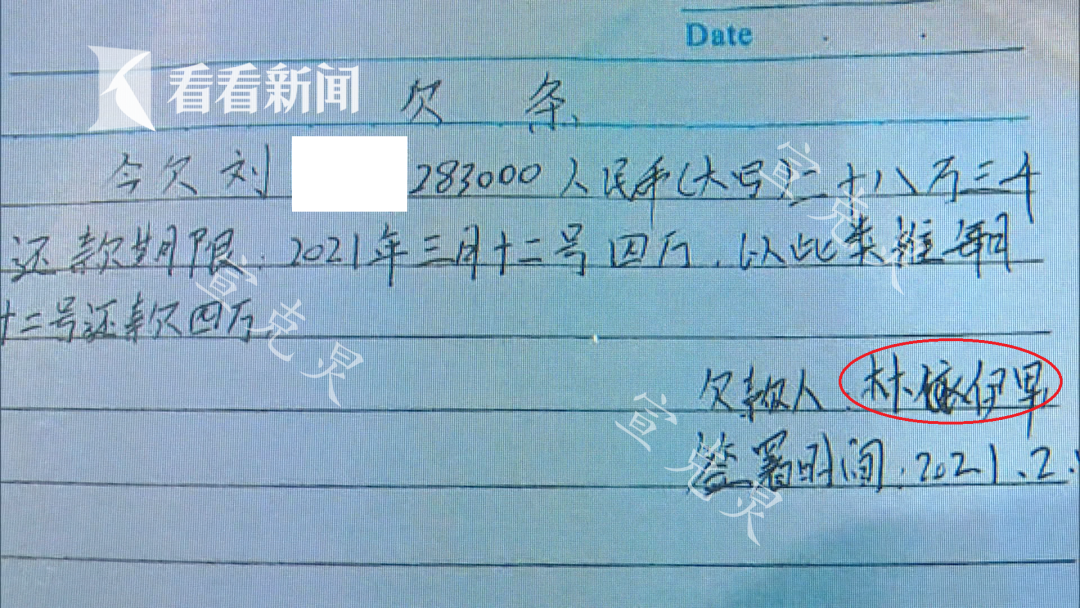 Date
看看新闻
欠条
今欠刘 283000人民币(大写)二十八万三千
还款期限:2021年三月十二号四万,以此类推每月
十二号还款四万
欠款人 林伊早
签署时间.2021.2.
宣克炅
宣克炅
宣克炅